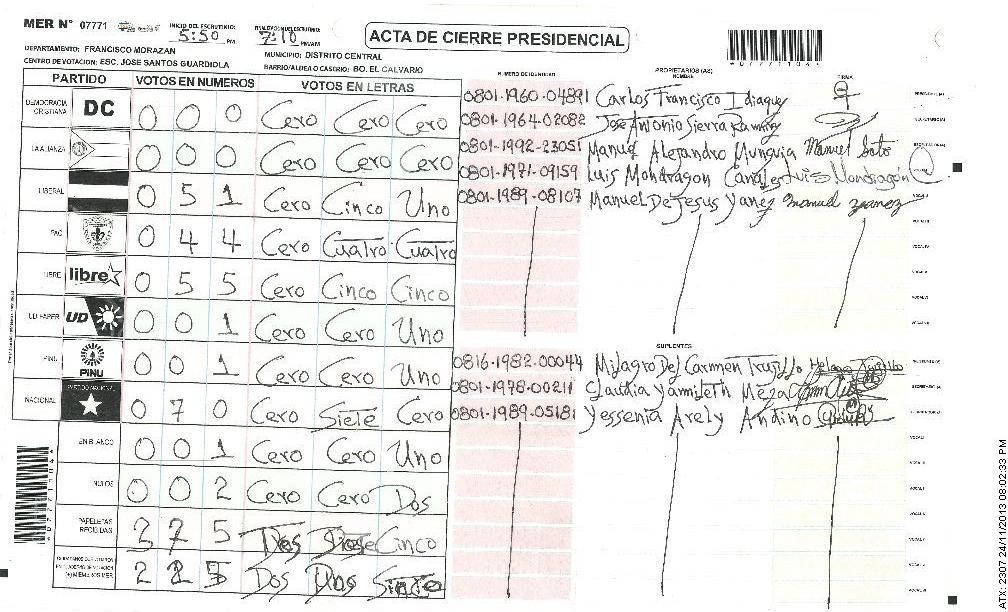 MER N° 07771 INICIO DEL ESCRUTINIO: 5:50 PM FINALIZACION DEL ESCRUTINIO: 7:10 PM/AM ACTA DE CIERRE PRESIDENCIAL
DEPARTAMENTO: FRANCISCO MORAZAN MUNICIPIO: DISTRITO CENTRAL
CENTRO DE VOTACION: ESC. JOSE SANTOS GUARDIOLA BARRIO/ALDEA O CASERIO: BO. EL CALVARIO
PARTIDO VOTOS EN NUMEROS VOTOS EN LETRAS NUMERO DE IDENTIDAD PROPIETARIOS (AS) NOMBRE FIRMA
DEMOCRACIA CRISTIANA DC 0 0 0 Cero Cero Cero
LA ALIANZA 0 0 0 Cero Cero Cero
LIBERAL 0 5 1 Cero Cinco Uno
PAC 0 4 4 Cero Cuatro Cuatro
LIBRE libre 0 5 5 Cero Cinco Cinco
UD FAPER UD 0 0 1 Cero Cero Uno
PINU PINU 0 0 1 Cero Cero Uno
NACIONAL PARTIDO NACIONAL 0 7 0 Cero Siete Cero
EN BLANCO 0 0 1 Cero Cero Uno
NULOS 0 0 2 Cero Cero Dos
PAPELETAS RECIBIDAS 7 5 Cinco
(+) MIEMBROS MER 2 2 Dos Dos
0801-1960-04891 Carlos Francisco Idiaquez
0801-1964-02082 Jose Antonio Sierra Ramirez
0801-1992-23051 Manuel Alejandro Munguia Manuel Soto
0801-1971-09159 Luis Mondragon Canales Luis Mondragón
0801-1989-08107 Manuel De Jesus Yanez manuel yanez
SUPLENTES
0816-1982-00044 Milagro Del Carmen Trujillo
0801-1978-00211 Claudia Yamileth Meza
0801-1989-05181 Yessenia Arely Andino
ATX: 2307 24/11/2013 08:02:33 PM